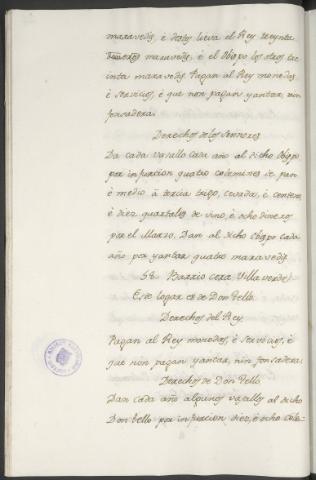 maravedis, é destos lieva el Rey treynta
maravedis, é el Obispo los otros tre
inta maravedis. Pagan al Rey monedas
é servicios, é que non pagan yantar, nin
fonsadera.
Derechos de los Señores
Da cada vasallo cada año al dicho Obispo
por infurcion quatro celemines de pan
é medio a tercia trigo, cevada, é centeno
é diez quartales de vino, é ocho dineros
por el Marzo. Dan al dicho Obispo cada
año por yantar quatro maravedis.
Barrio cerca Villaverde
Este logar es de Don Tello
Derechos del Rey
Pagan al Rey monedas, é servicios, é
que non pagan yantar, nin fonsadera.
Derechos de Don Tello
Dan cada año algunos vasallos al dicho
Don tello por infurcion diez, é ocho cele-